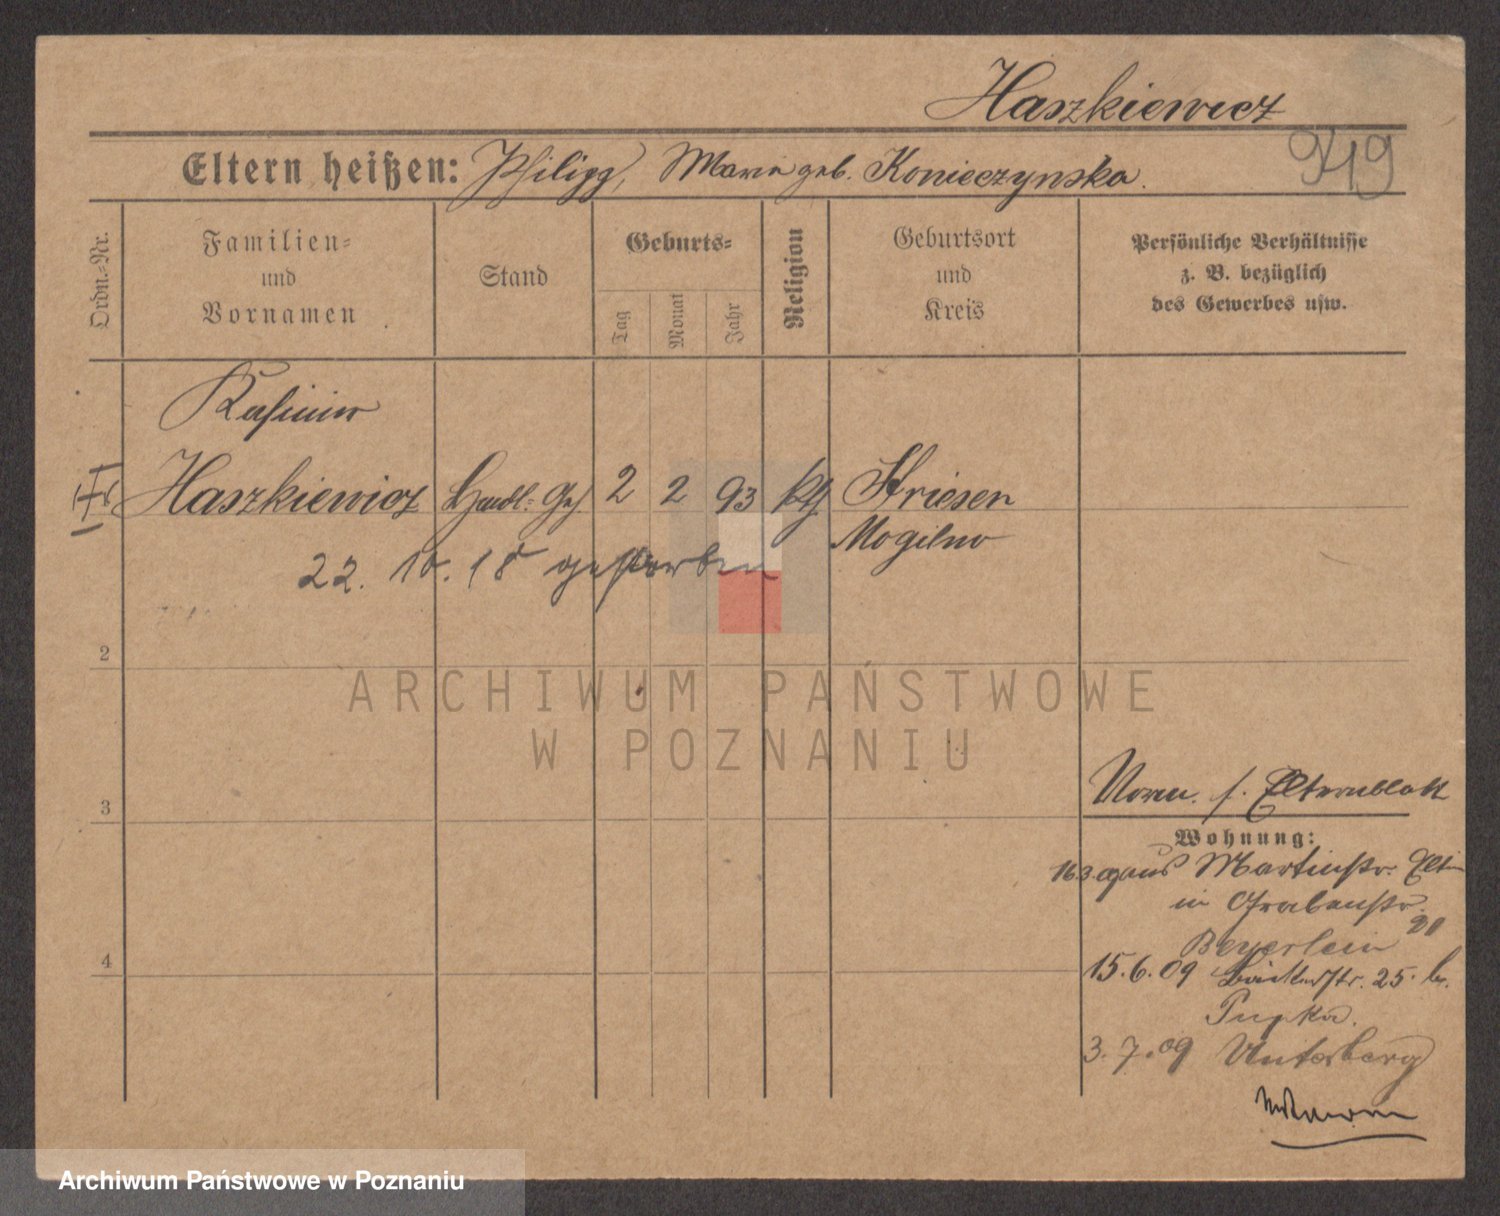 Haszkiewicz
949
Eltern heißen: Philipp, Maria geb. Konieczynska.
Ordn.-Nr.
Familien-
und
Vornamen
Stand
Geburts-
Tag
Monat
Jahr
Religion
Geburtsort
und
Kreis
Persönliche Verhältnisse
z. B. bezüglich
des Gewerbes usw.
Kasimir
Haszkiewicz Handl. Geh. 2 2 93 kth Striesen
Mogilno
22. 10. 18 gestorben
2
ARCHIWUM PAŃSTWOWE
W POZNANIU
3
s. Elternblatt
Wohnung:
Martinstr.
in Grabenstr.
Beyerlein
4
15.6.09 Bäckerstr. 25. b.
Pupka.
3.7.09 Unterberg
Archiwum Państwowe w Poznaniu